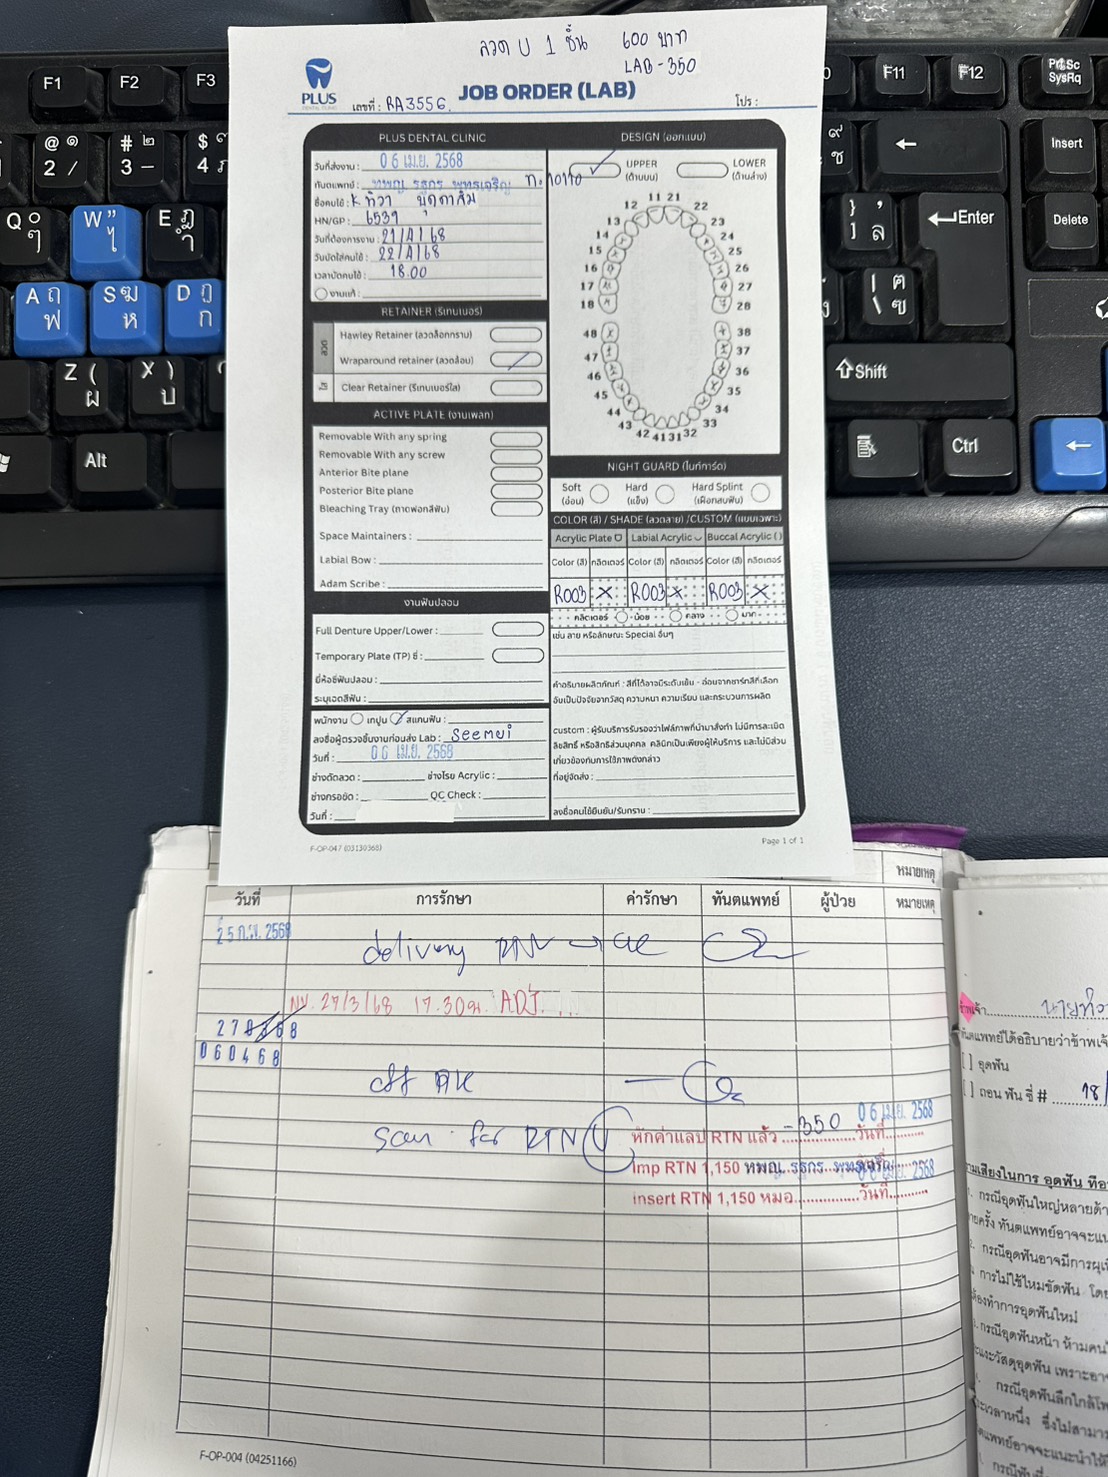 ลวด U 1 ชิ้น 600 บาท
LAB - 350
PLUS
DENTAL CLINIC
เลขที่ : RA3556
JOB ORDER (LAB)
โปร :
PLUS DENTAL CLINIC
วันที่ส่งงาน : 06 เม.ย. 2568
ทันตแพทย์ : ทพญ. รฐกร พุทธเจริญ ท.10110
ชื่อคนไข้ : K ทิวา
HN/GP : 6539
วันที่ต้องการงาน : 21/4/68
วันนัดใส่คนไข้ : 22/4/68
เวลานัดคนไข้ : 18.00
งานแก้ :
RETAINER (รีเทนเนอร์)
ลวด
Hawley Retainer (ลวดล็อกกราม)
Wraparound retainer (ลวดอ้อม)
ใส
Clear Retainer (รีเทนเนอร์ใส)
ACTIVE PLATE (งานเพลท)
Removable With any spring
Removable With any screw
Anterior Bite plane
Posterior Bite plane
Bleaching Tray (ถาดฟอกสีฟัน)
Space Maintainers :
Labial Bow :
Adam Scribe :
งานฟันปลอม
Full Denture Upper/Lower :
Temporary Plate (TP) ซี่ :
ยี่ห้อซี่ฟันปลอม :
ระบุเฉดสีฟัน :
พนักงาน เทปูน สแกนฟัน :
ลงชื่อผู้ตรวจชิ้นงานก่อนส่ง Lab : Seemui
วันที่ : 06 เม.ย. 2568
ช่างดัดลวด : ช่างโรย Acrylic :
ช่างกรอขัด : QC Check :
วันที่ :
DESIGN (ออกแบบ)
UPPER (ด้านบน)
LOWER (ด้านล่าง)
11 21
12 22
13 23
14 24
15 25
16 26
17 27
18 28
48 38
47 37
46 36
45 35
44 34
43 33
42 41 31 32
NIGHT GUARD (ไนท์การ์ด)
Soft (อ่อน) Hard (แข็ง) Hard Splint (เฝือกสบฟัน)
COLOR (สี) / SHADE (ลวดลาย) /CUSTOM (แบบเฉพาะ)
Acrylic Plate Labial Acrylic Buccal Acrylic ()
Color (สี) กลิตเตอร์ Color (สี) กลิตเตอร์ Color (สี) กลิตเตอร์
R003 X R003 X R003 X
กลิตเตอร์ น้อย กลาง มาก
เช่น ลาย หรือลักษณะ Special อื่นๆ
คำอธิบายผลิตภัณฑ์ : สีที่ได้อาจมีระดับเข้ม - อ่อนจากชาร์ทสีที่เลือก
อันเป็นปัจจัยจากวัสดุ ความหนา ความเรียบ และกระบวนการผลิต
custom : ผู้รับบริการรับรองว่าไฟล์ภาพที่นำมาสั่งทำ ไม่มีการละเมิด
ลิขสิทธิ์ หรือสิทธิส่วนบุคคล คลินิกเป็นเพียงผู้ให้บริการ และไม่มีส่วน
เกี่ยวข้องกับการใช้ภาพดังกล่าว
ที่อยู่จัดส่ง :
ลงชื่อคนไข้ยืนยัน/รับทราบ :
F-OP-047 (03130368)
Page 1 of 1
หมายเหตุ
วันที่ การรักษา ค่ารักษา ทันตแพทย์ ผู้ป่วย หมายเหตุ
25 ก.พ. 2568
delivery RTN
NV. 27/3/68 17.30น. ADJ.
270368
060468
off
scan for RTN U
หักค่าแลป RTN แล้ว -350 วันที่ 06 เม.ย. 2568
Imp RTN 1,150 ทพญ. รฐกร พุทธเจริญ
insert RTN 1,150 หมอ วันที่
F-OP-004 (04251166)
ข้าพเจ้า
[ ] อุดฟัน
[ ] ถอน ฟัน ซี่ # 18/
F1
F2
F3
F11
F12
PrtSc
SysRq
Insert
Delete
Enter
Shift
Ctrl
Alt